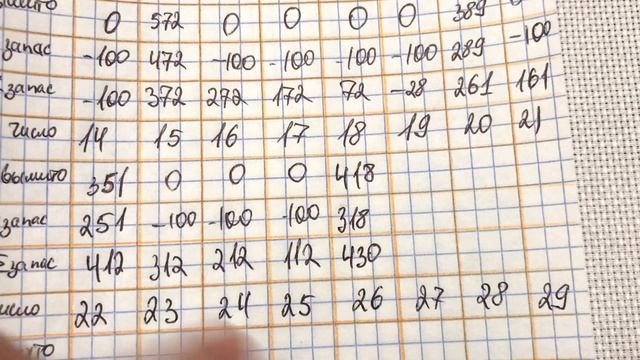 0 572 0 0 0 0 389
запас -100 472 -100 -100 -100 -100 289 -100
запас -100 372 272 172 72 -28 261 161
число 14 15 16 17 18 19 20 21
вышито 351 0 0 0 418
запас 251 -100 -100 -100 318
запас 412 312 212 112 430
22 23 24 25 26 27 28 29